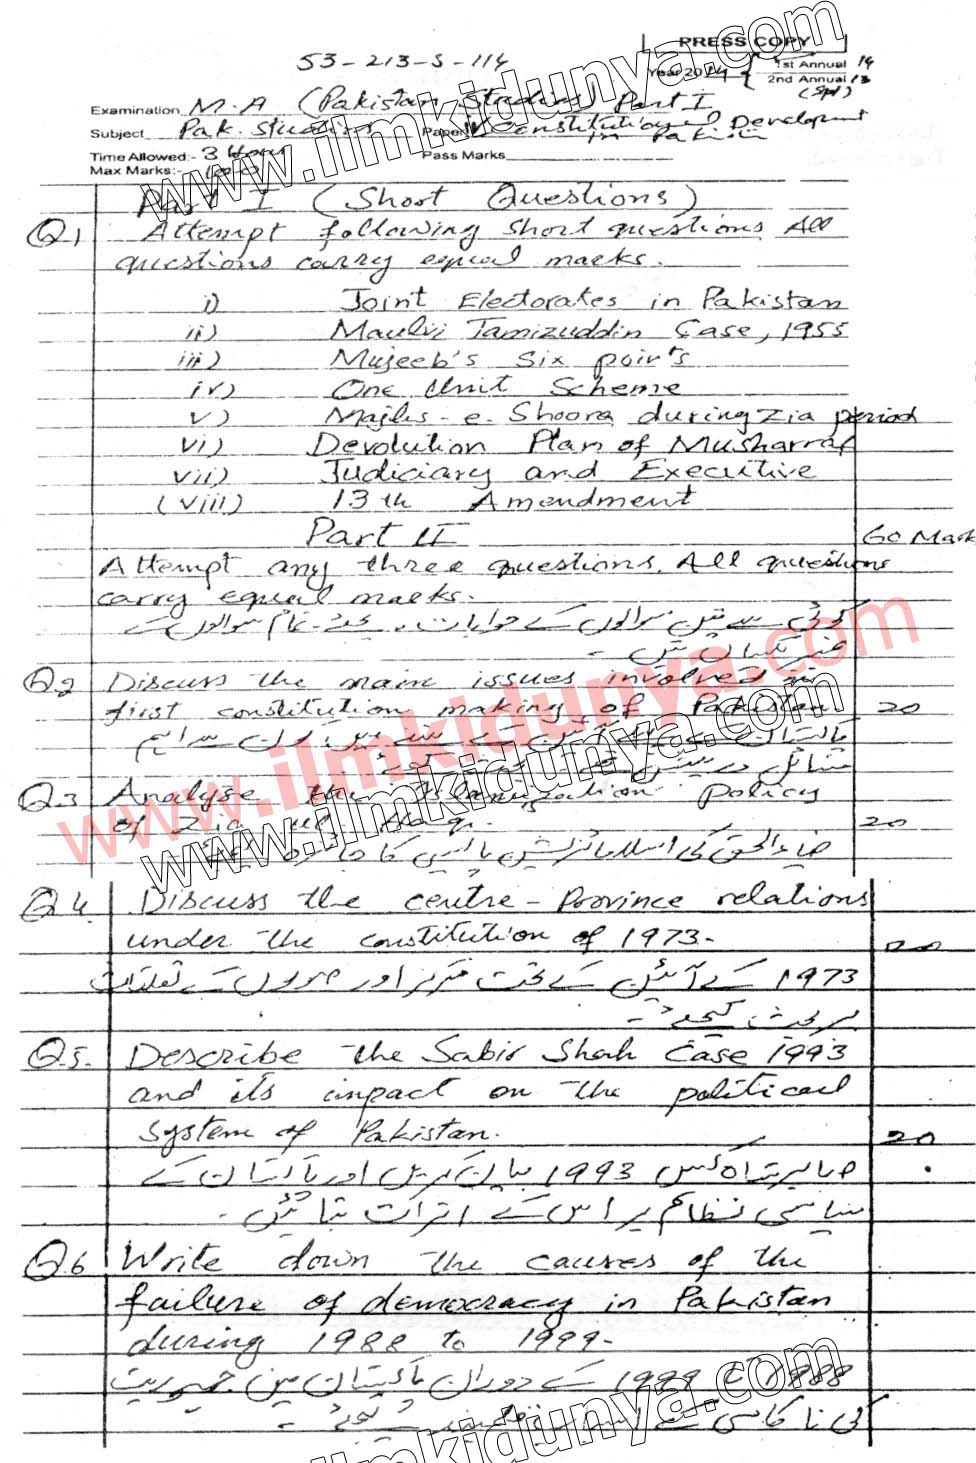 PRESS COPY
53-213-S-114
Year 2014
1st Annual 14
2nd Annual 13
(Spl)
Examination M.A (Pakistan Studies) Part I
Subject Pak. Studies Paper IV Constitutional Development
in Pakistan
Time Allowed:- 3 Hour Pass Marks
Max Marks:- 100
Part I (Short Questions)
Q1 Attempt following short questions. All
questions carry equal marks.
i) Joint Electorates in Pakistan
ii) Maulvi Tamizuddin Case, 1955
iii) Mujeeb's Six points
iv) One Unit Scheme
v) Majlis-e-Shoora during Zia period
vi) Devolution Plan of Musharraf
vii) Judiciary and Executive
(viii) 13th Amendment
Part II 60 Mark
Attempt any three questions. All questions
carry equal marks.
کوئی سے تین سوالوں کے جوابات دیجئے۔ تمام سوالوں کے
نمبر یکساں ہیں۔
Q2 Discuss the main issues involved in
first constitution making of Pakistan 20
پاکستان کے
مسائل
Q3 Analyse the Islamization policy
of Zia ul Haq. 20
ضیاء الحق کی اسلامائزیشن پالیسی کا جائزہ
Q4 Discuss the centre-Province relations
under the constitution of 1973. 20
1973 کے آئین کے تحت مرکز اور صوبوں کے تعلقات
پر بحث کیجئے۔
Q5. Describe the Sabir Shah Case 1993
and its impact on the political
system of Pakistan. 20
صابر شاہ کیس 1993 بیان کریں اور پاکستان کے
سیاسی نظام پر اس کے اثرات بتائیں۔
Q6 Write down the causes of the
failure of democracy in Pakistan
during 1988 to 1999.
1988 تا 1999 کے دوران پاکستان میں جمہوریت
کی ناکامی کے
www.ilmkidunya.com
www.ilmkidunya.com
www.ilmkidunya.com
www.ilmkidunya.com